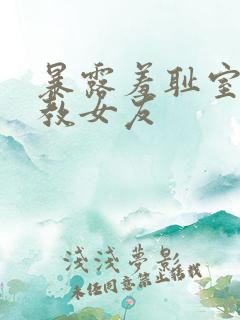 暴露羞耻室
教女友
浅浅夢影
未经同意禁止转载